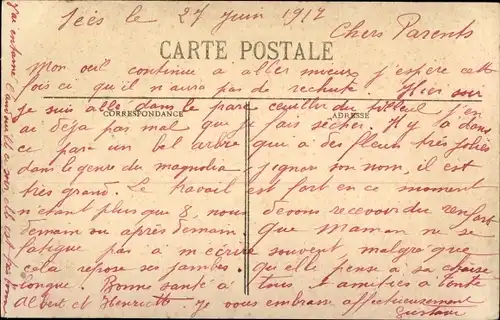 Sées le 27 Juin 1917
Chers Parents
CARTE POSTALE
Mon oeil continue à aller mieux j'espère cette
fois ce qu'il n'aura pas de rechute. Hier soir
je suis allé dans le parc cueillir du tilleul j'en
CORRESPONDANCE ADRESSE
ai déja pas mal que je fais sécher. Il y a dans
ce parc un bel arbre que a des fleurs très jolies
dans le genre du magnolia j'ignore son nom, il est
très grand. Le travail est fort en ce moment
n'étant plus que 8, nous devons recevoir du renfort
demain ou après demain. que Maman ne se
fatigue pas à m'écrire souvent malgré que
cela repose ses jambes. qu'elle pense à sa chaise
longue. Bonne santé à tous. amitiés à tante
Albert et Henriette je vous embrasse affectueusement
Gustave
J'ai entamé